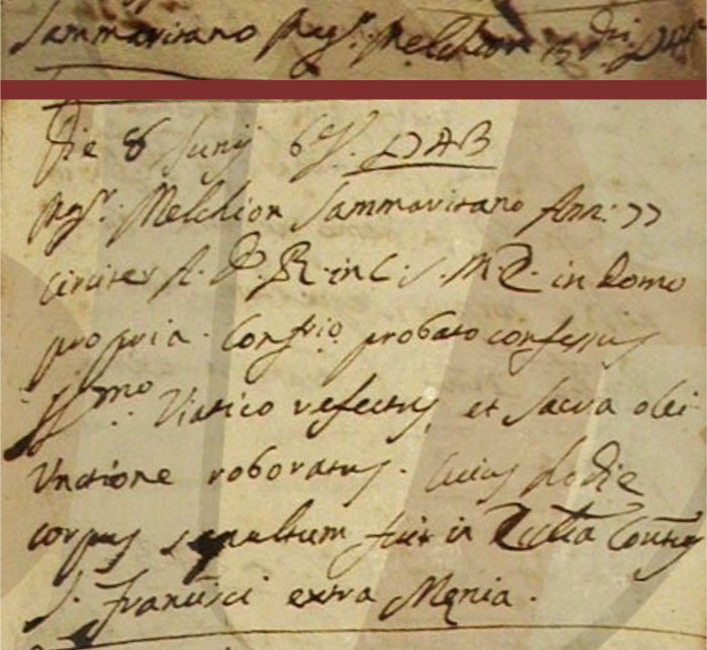 Sammavirano Mag.r Melchior
Die 8 Junij 67. DAB
Mag.r Melchior Sammavirano Ann: 77
circiter A. D. R. in C. S. M. E. in Domo
propria. Confrio probato confessus
SSmo Viatico refectus, et Sacra olei
Unctione roboratus. Cuius hodie
corpus sepultum fuit in Ecclia Contus
S. Francisci extra Menia.